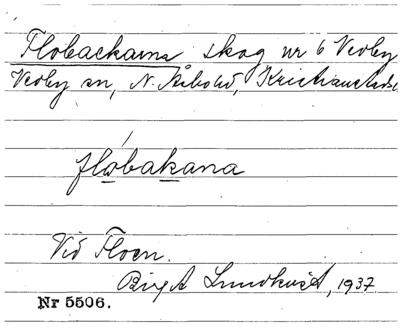 Flobackarna skog nr 6 Verby
Verby sn, N. Åsbo hd, Kristianstads
flobakana
Vid Floen.
Birgit Lundkvist, 1937
Nr 5506.